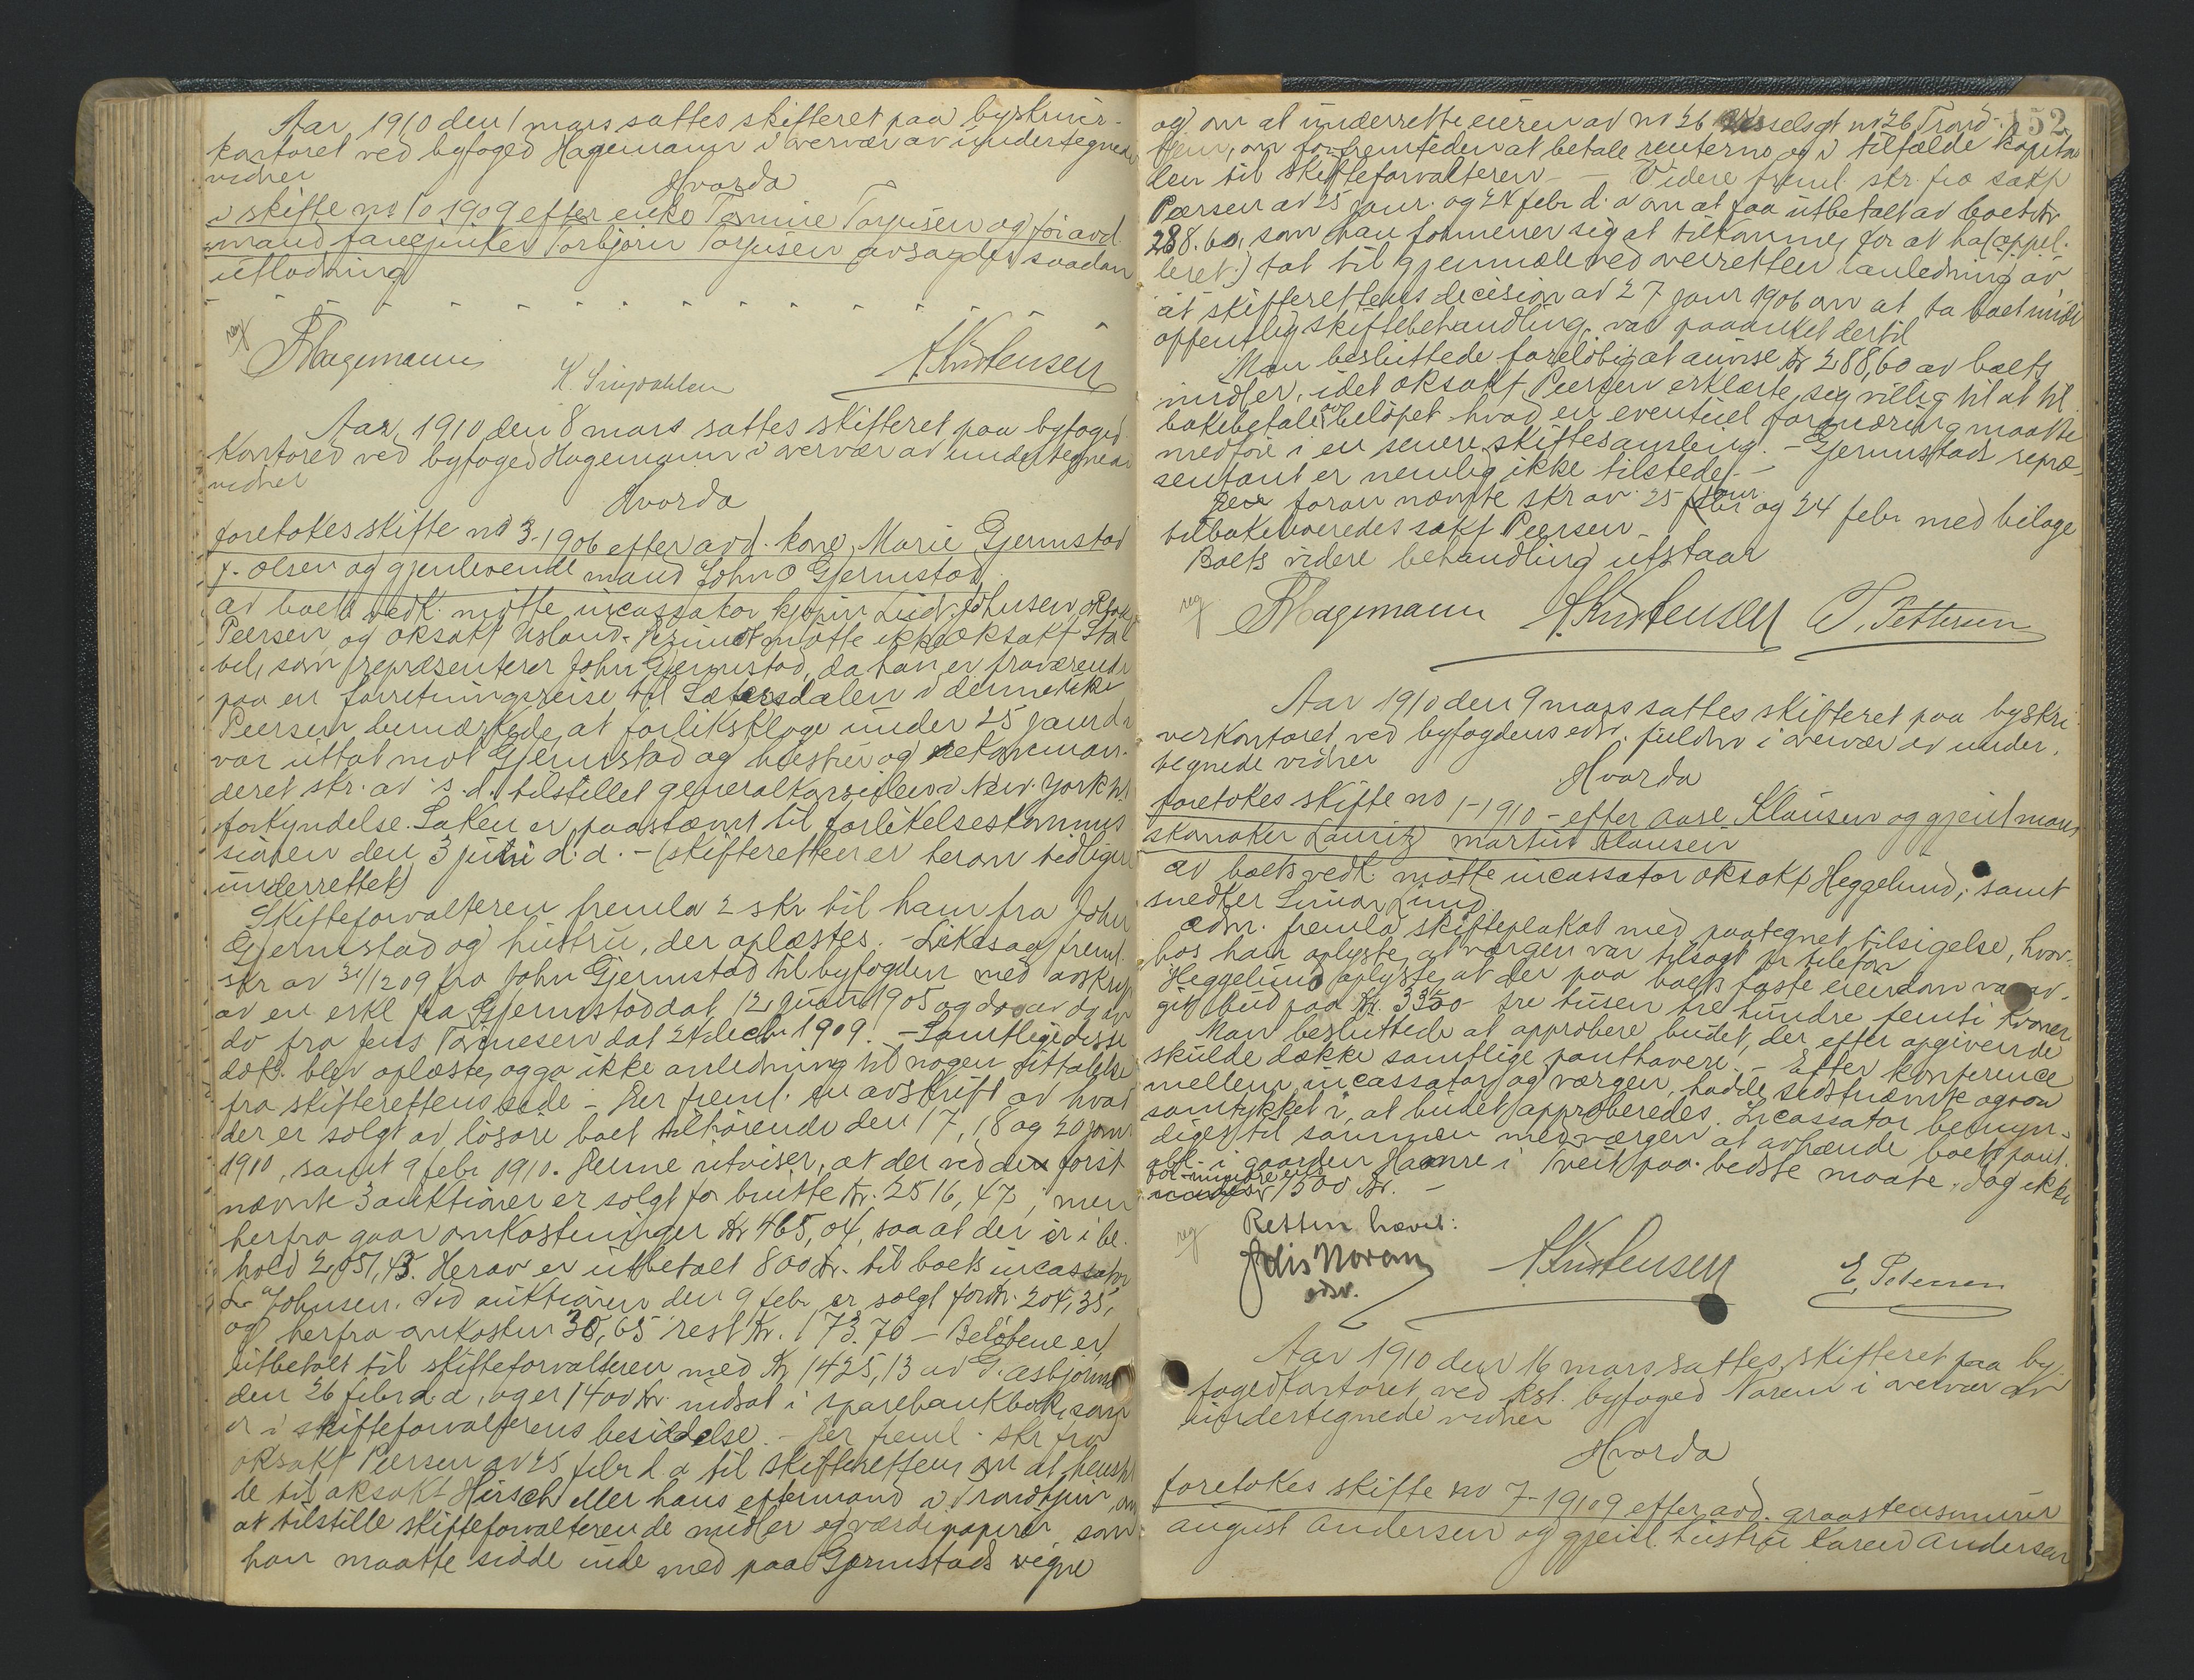 Aar 1910 den 1 mars sattes skifteret paa byskriver-
kontoret ved byfoged Hagemann i overvær av undertegnede
vidner
Hvorda
i skifte no 10 1909 efter enke Tomine Torjusen og før avd.
mand Torbjørn Torjusen avsagdes saadan
utlodning
reg
Hagemann
AKristensen
Aar 1910 den 8 mars sattes skifteret paa byfoged
kontoret ved byfoged Hagemann i overvær av undertegnede
vidner
Hvorda
foretokes skifte no 3-1906 efter avd. kone Marie Gjermstad
f. Olsen og gjenlevende mand John O Gjermstad
av boets vedk. møtte incassator kjøpm Ludv. Johnsen, oksakf
Peersen og oksakf Usland. Derimot møtte ikke oksakf Sta
bel, som repræsenterer John Gjermstad, da han er fraværende
paa en forretningsreise til Sætersdalen i denne uke
Peersen bemærkede, at forliksklage under 25 januar d a
var uttat mot Gjermstad og hustru og rekomman-
deret skr. av s. d. tilstillet generalkonsulen i New-York til
forkyndelse. Saken er paastevnt til forlikelseskommis
sionen den 3 juni d. a. - (skifteretten er herom tidligere
underrettet)
Skifteforvalteren fremla 2 skr til ham fra John
Gjermstad og hustru, der oplæstes. - Likesaa freml.
skr av 31/12 09 fra John Gjermstad til byfogden med avskrift
av en erkl fra Gjermstad dat 12 juni 1905 og do av do av
do fra Jens Tønnesen dat 24 decbr 1909. - Samtlige disse
dok. blev oplæste, og ga ikke anledning til nogen uttalelse
fra skifterettens side - Der freml. en avskrift av hvad
der er solgt av løsøre boet tilhørende den 17, 18 og 20 janr
1910, samt 9 febr 1910. Denne utviser, at der ved de først
nævnte 3 auktioner er solgt for brutto kr. 2516,47, men
herfra gaar omkostninger kr 465,04, saa at der er i be-
hold 2051,43. Herav er utbetalt 800 kr. til boets incassator
L. Johnsen. Ved auktionen den 9 febr er solgt for kr. 204,35,
og herfra omkostn 30,65 rest kr. 173.70 - Beløpene er
utbetalt til skifteforvalteren med kr 1425,13 av G. Asbjørnsen
den 26 febr d. a, og er 1400 kr indsat i sparebankbok, som
er i skifteforvalterens besiddelse. - Der freml. skr fra
oksakf Peersen av 25 febr d. a til skifteretten om at henstil
le til oksakf Hirsch eller hans eftermand i Trondhjem, om
at tilstille skifteforvalteren de midler og værdipapirer, som
han maatte sidde inde med paa Gjermstads vegne
152
og om at underrette eieren av no 26 no 26 Trond-
hjem, om for fremtiden at betale renterne og i tilfælde kapita
len til skifteforvalteren - Videre freml skr. fra sakf
Peersen av 25 janr. og 24 febr d. a om at faa utbetalt av boet kr.
288.60, som han formener sig at tilkomme, for at ha (appel-
leret:) tat til gjenmæle ved overretten i anledning av
at skifterettens decision av 27 janr 1906 om at ta boet under
offentlig skiftebehandling, var paaanket dertil
Man besluttede foreløbig at anvise kr 288,60 av boets
midler, idet oksakf Peersen erklærte sig villig til at til
bakebetale av beløpet hvad en eventuel forandring maatte
medføre i en senere skiftesamling. - Gjermstads repræ-
sentant er nemlig ikke tilstede. -
foran nævnte skr av 25 janr og 24 febr med bilage
tilbakeleveredes sakf Peersen -
Boets videre behandling utstaar
reg
Hagemann AKristensen T. Pettersen
Aar 1910 den 9 mars sattes skifteret paa byskri-
verkontoret ved byfogdens edsv. fuldm i overvær av under-
tegnede vidner
Hvorda
foretokes skifte no 1-1910 - efter Aase Klausen og gjenl mand
skomaker Lauritz Martin Klausen
av boets vedk. møtte incassator oksakf Heggelund, samt
snedker Lind.
Adm. fremla skifteplakat med paategnet tilsigelse, hvor-
hos han oplyste, at værgen var tilsagt pr telefon
Heggelund oplyste, at der paa boets faste eiendom var av-
git bud paa kr. 3350 - tre tusen tre hundre femti kroner
Man besluttede at approbere budet, der efter opgivende
skulde dække samtlige panthavere. - Efter konference
mellem incassator og værgen, hadde sidstnævnte ogsaa
samtykket i, at budet approberedes. Incassator bemyn-
diges til sammen med værgen at avhænde boets pant
obl. i gaarden Haanre i Tveit paa bedste maate, dog ikke
for mindre end 1500 kr. -
reg
Retten hævet:
Nils Norem
edsv.
AKristensen
E. Petersen
Aar 1910 den 16 mars sattes skifteret paa by
fogedkontoret ved kst. byfoged Norem i overvær av
undertegnede vidner
Hvorda
foretokes skifte no 7-1909 efter avd. graastensmurer
August Andersen og gjenl. hustru Karen Andersen